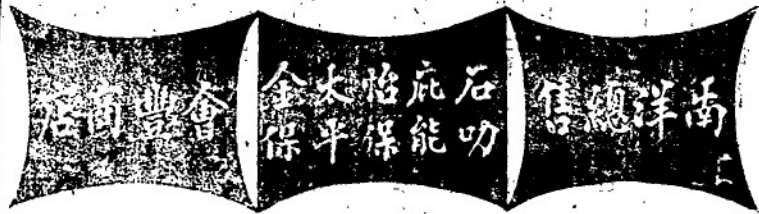 南洋總售
石叻
庇能
怡保
太平
金保
會豐商店